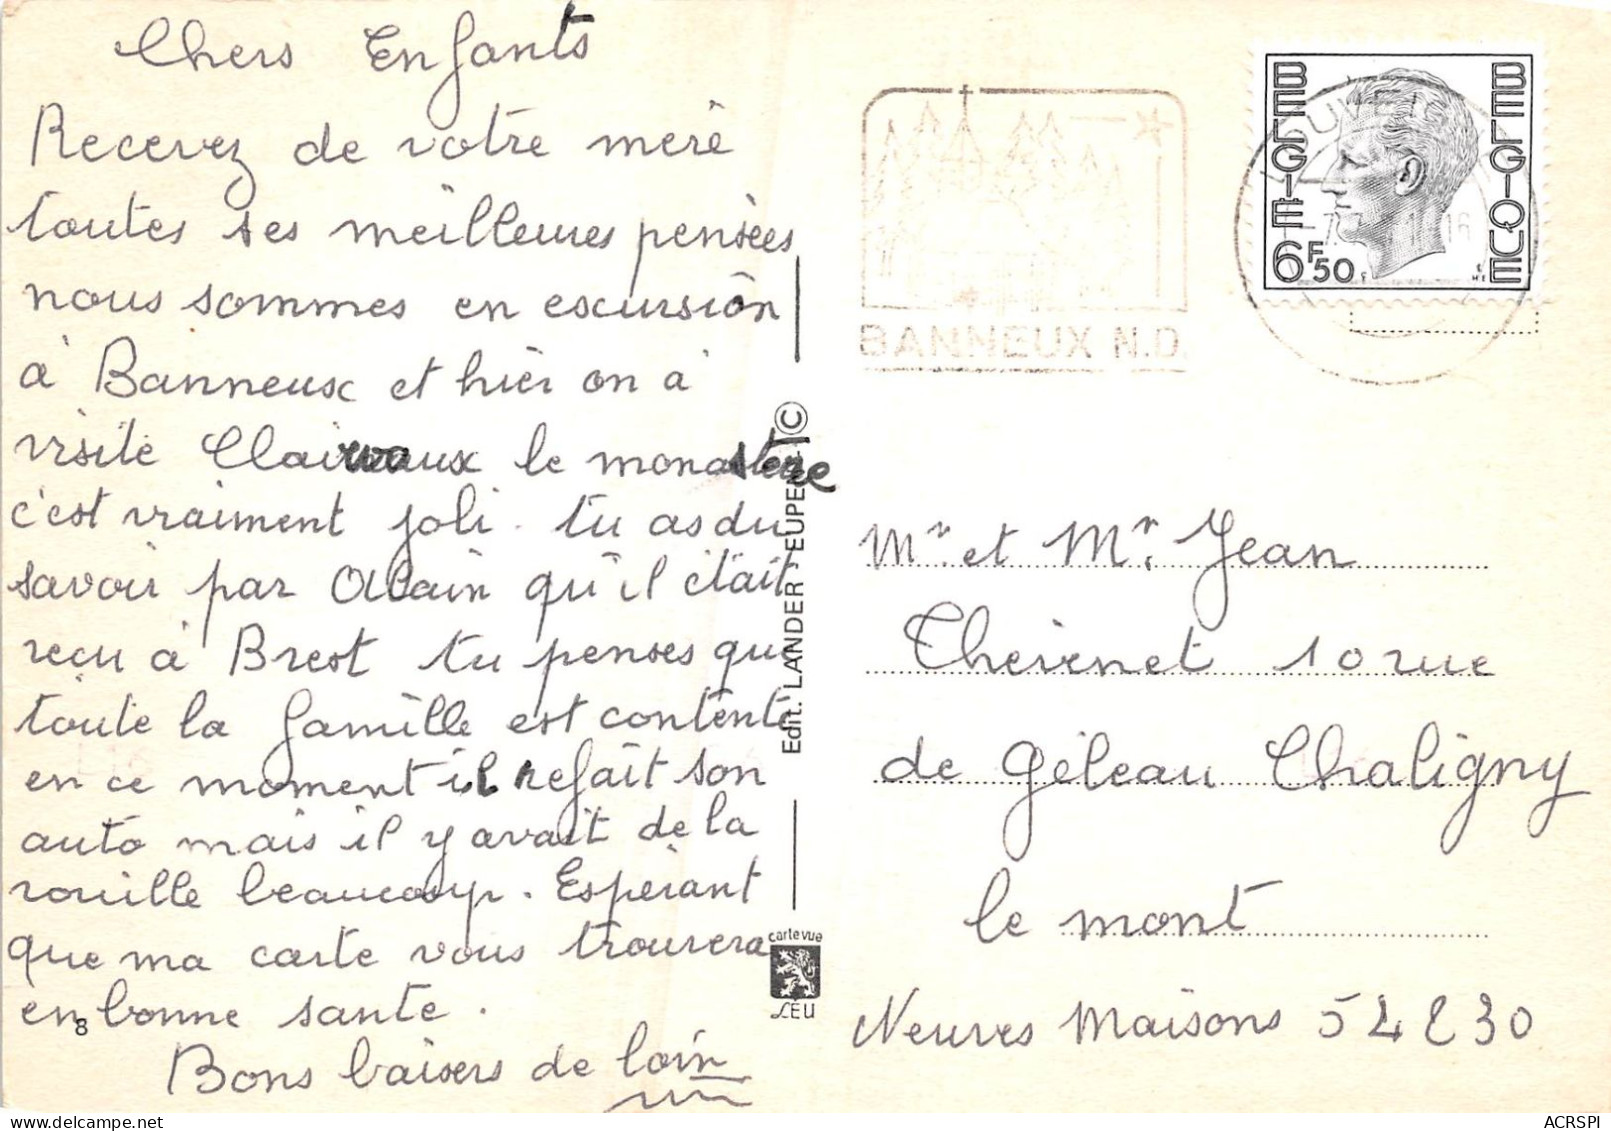 Chers Enfants
Recevez de votre mère
toutes ses meilleures pensées
nous sommes en escursion
à Banneux et hier on à
visité Clairvaux le monastère
c'est vraiment joli. tu as du
savoir par Alain qu'il était
reçu à Brest tu penses que
toute la famille est contente
en ce moment il refait son
auto mais il y avait de la
rouille beaucoup. Espérant
que ma carte vous trouvera
en bonne santé.
8
Bons baisers de loin
Edit. LANDER - EUPEN ©
carte vue
LEU
BANNEUX N.D.
BELGIE BELGIQUE
6F50
Mr et Mr. Jean
Thévenet 10 rue
de Géleau Chaligny
le mont
Neuves Maisons 54230
ACRSPI